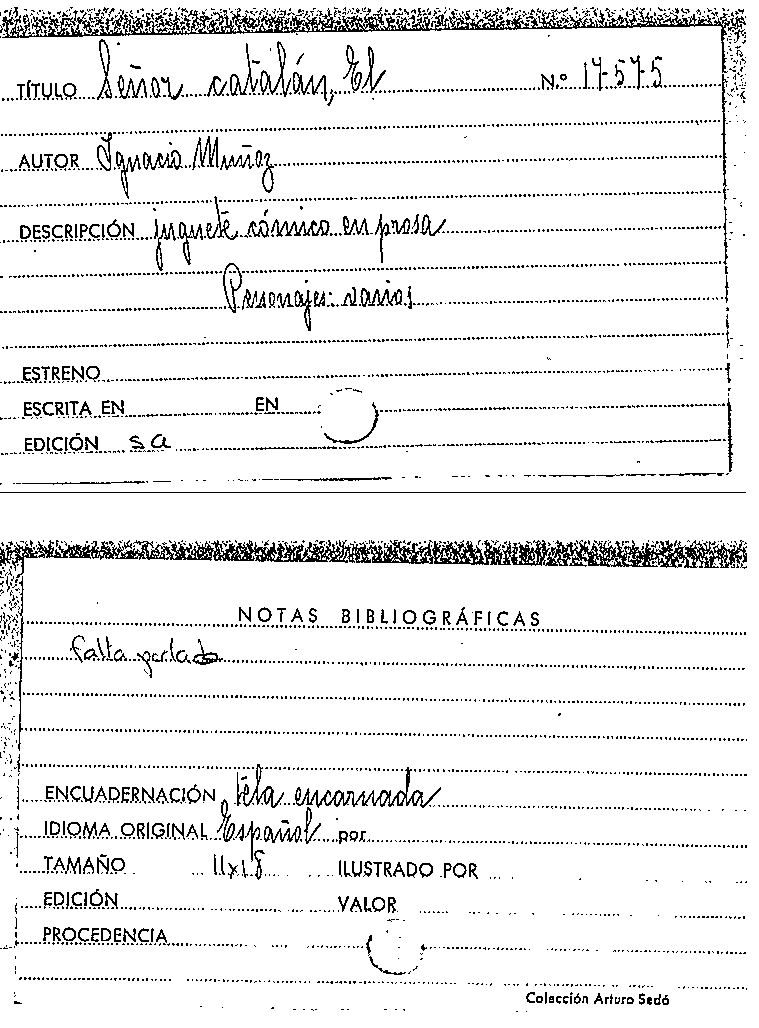 TÍTULO Señor catalán, El N.º 17-57-5
AUTOR Ignacio Muñoz
DESCRIPCIÓN juguete cómico en prosa
Personajes: varios
ESTRENO
ESCRITA EN EN
EDICIÓN sa
NOTAS BIBLIOGRÁFICAS
falta
ENCUADERNACIÓN tela encarnada
IDIOMA ORIGINAL Español por
TAMAÑO 11x18 ILUSTRADO POR
EDICIÓN VALOR
PROCEDENCIA
Colección Arturo Sedó